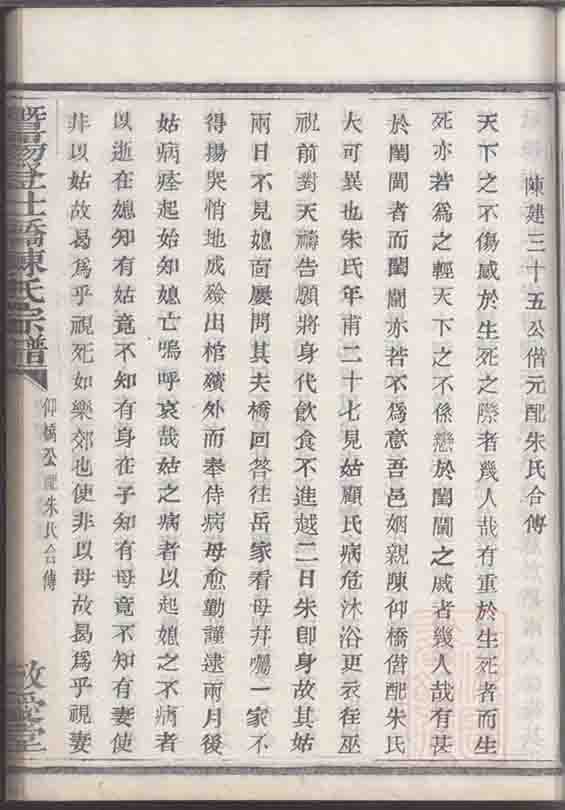 陳建三十五公偕元配朱氏合傳
天下之不傷感於生死之際者幾人哉有重於生死者而生
死亦若爲之輕天下之不係戀於閨闥之戚者幾人哉有甚
於閨閫者而閨闥亦若不爲意吾邑姻親陳仰橋偕配朱氏
大可異也朱氏年甫二十七見姑顧氏病危沐浴更衣徃巫
祝前對天禱告願將身代飲食不進越二日朱卽身故其姑
兩日不見媳面屢問其夫橋回答往岳家看母幷囑一家不
得揚哭悄地成殮出棺殯外而奉侍病母愈勤謹逮兩月後
姑病痊起始知媳亡嗚呼哀哉姑之病者以起媳之不病者
以逝在媳知有姑竟不知有身在子知有母竟不知有妻使
非以姑故曷爲乎視死如樂郊也使非以母故曷爲乎視妻
暨陽登仕橋陳氏宗譜
仰橋公配朱氏合傳
敬愛堂